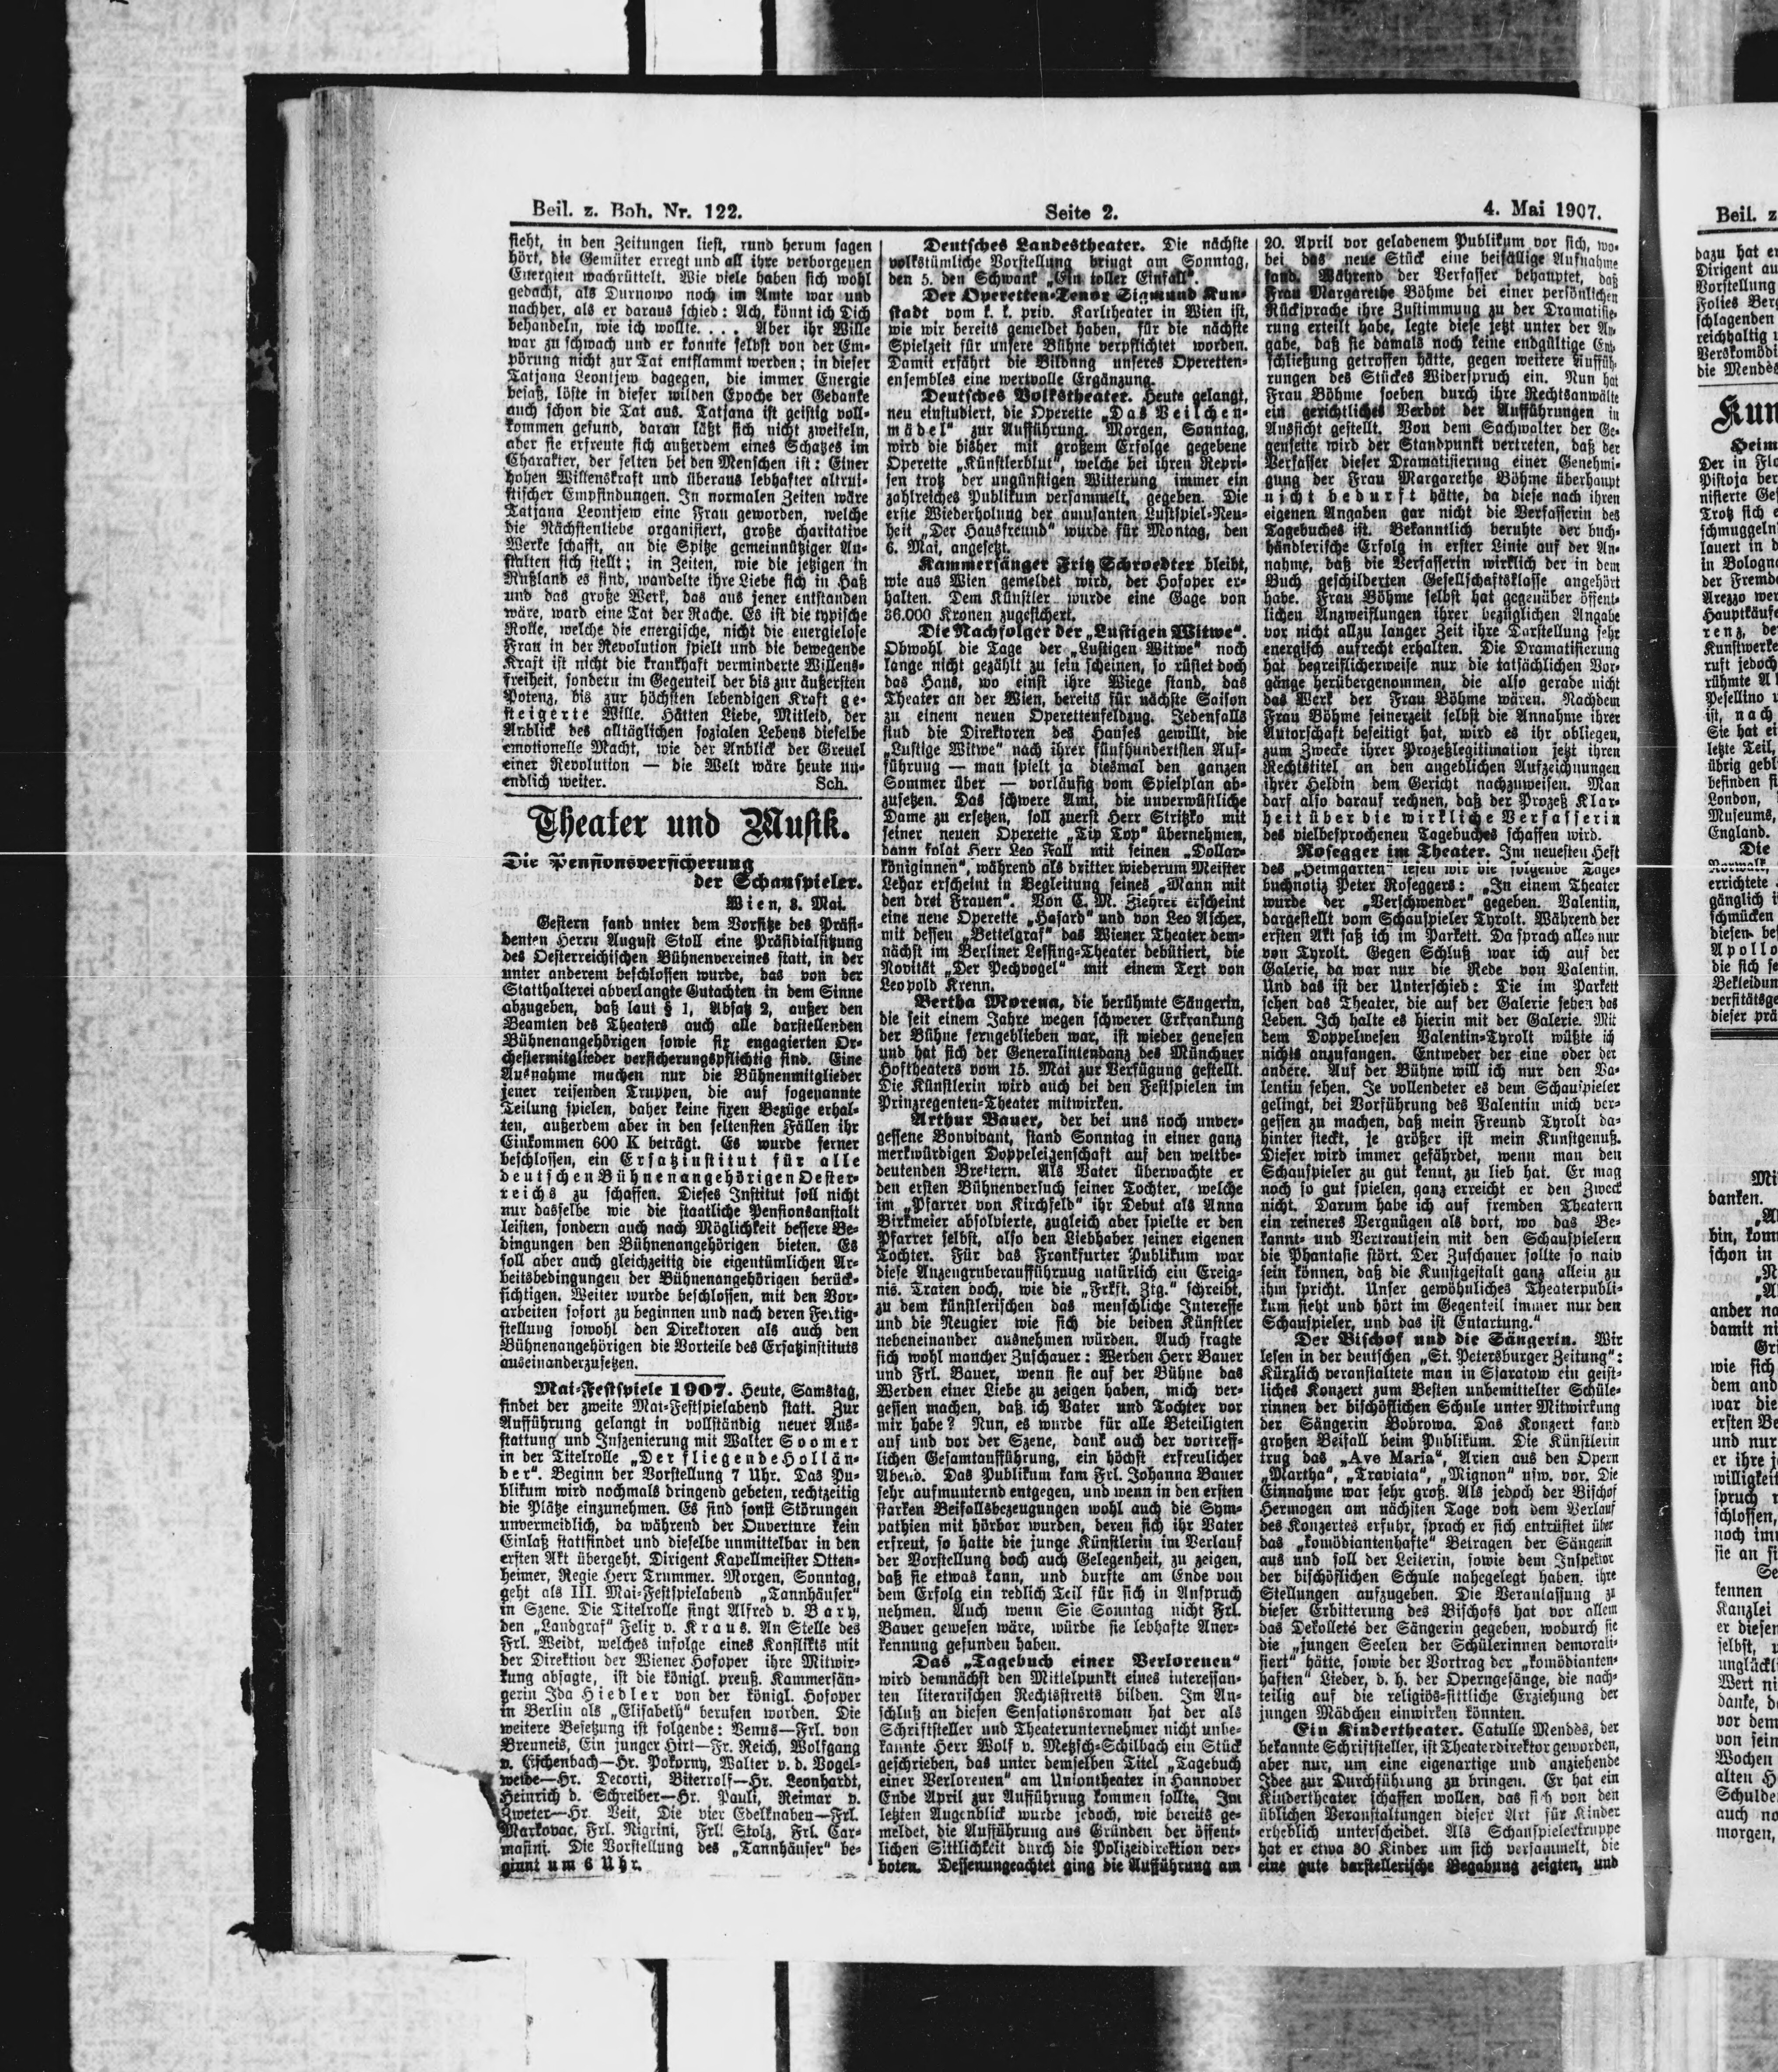 Beil. z. Boh. Nr. 122.
Seite 2.
4. Mai 1907.
sieht, in den Zeitungen liest, rund herum sagen
hört, die Gemüter erregt und all ihre verborgenen
Energien wachrüttelt. Wie viele haben sich wohl
gedacht, als Durnowo noch im Amte war und
nachher, als er daraus schied: Ach, könnt ich Dich
behandeln, wie ich wollte. . . . Aber ihr Wille
war zu schwach und er konnte selbst von der Em-
pörung nicht zur Tat entflammt werden; in dieser
Tatjana Leontjew dagegen, die immer Energie
besaß, löste in dieser wilden Epoche der Gedanke
auch schon die Tat aus. Tatjana ist geistig voll-
kommen gesund, daran läßt sich nicht zweifeln,
aber sie erfreute sich außerdem eines Schatzes im
Charakter, der selten bei den Menschen ist: Einer
hohen Willenskraft und überaus lebhafter altrui-
stischer Empfindungen. In normalen Zeiten wäre
Tatjana Leontjew eine Frau geworden, welche
die Nächstenliebe organisiert, große charitative
Werke schafft, an die Spitze gemeinnütziger An-
stalten sich stellt; in Zeiten, wie die jetzigen in
Rußland es sind, wandelte ihre Liebe sich in Haß
und das große Werk, das aus jener entstanden
wäre, ward eine Tat der Rache. Es ist die typische
Rolle, welche die energische, nicht die energielose
Frau in der Revolution spielt und die bewegende
Kraft ist nicht die krankhaft verminderte Willens-
freiheit, sondern im Gegenteil der bis zur äußersten
Potenz, bis zur höchsten lebendigen Kraft ge-
steigerte Wille. Hätten Liebe, Mitleid, der
Anblick des alltäglichen sozialen Lebens dieselbe
emotionelle Macht, wie der Anblick der Greuel
einer Revolution — die Welt wäre heute un-
endlich weiter. Sch.
Theater und Musik.
Die Pensionsversicherung
der Schauspieler.
Wien, 3. Mai.
Gestern fand unter dem Vorsitze des Präsi-
denten Herrn August Stoll eine Präsidialsitzung
des Oesterreichischen Bühnenvereines statt, in der
unter anderem beschlossen wurde, das von der
Statthalterei abverlangte Gutachten in dem Sinne
abzugeben, daß laut § 1, Absatz 2, außer den
Beamten des Theaters auch alle darstellenden
Bühnenangehörigen sowie fix engagierten Or-
chestermitglieder versicherungspflichtig sind. Eine
Ausnahme machen nur die Bühnenmitglieder
jener reisenden Truppen, die auf sogenannte
Teilung spielen, daher keine fixen Bezüge erhal-
ten, außerdem aber in den seltensten Fällen ihr
Einkommen 600 K beträgt. Es wurde ferner
beschlossen, ein Ersatzinstitut für alle
deutschen Bühnenangehörigen Oester-
reichs zu schaffen. Dieses Institut soll nicht
nur dasselbe wie die staatliche Pensionsanstalt
leisten, sondern auch nach Möglichkeit bessere Be-
dingungen den Bühnenangehörigen bieten. Es
soll aber auch gleichzeitig die eigentümlichen Ar-
beitsbedingungen der Bühnenangehörigen berück-
sichtigen. Weiter wurde beschlossen, mit den Vor-
arbeiten sofort zu beginnen und nach deren Fertig-
stellung sowohl den Direktoren als auch den
Bühnenangehörigen die Vorteile des Ersatzinstituts
auseinanderzusetzen.
Mai-Festspiele 1907. Heute, Samstag,
findet der zweite Mai-Festspielabend statt. Zur
Aufführung gelangt in vollständig neuer Aus-
stattung und Inszenierung mit Walter Soomer
in der Titelrolle „Der fliegende Hollän-
der“. Beginn der Vorstellung 7 Uhr. Das Pu-
blikum wird nochmals dringend gebeten, rechtzeitig
die Plätze einzunehmen. Es sind sonst Störungen
unvermeidlich, da während der Ouverture kein
Einlaß stattfindet und dieselbe unmittelbar in den
ersten Akt übergeht. Dirigent Kapellmeister Otten-
heimer, Regie Herr Trummer. Morgen, Sonntag,
geht als III. Mai-Festspielabend „Tannhäuser“
in Szene. Die Titelrolle singt Alfred v. Bary,
den „Landgraf“ Felix v. Kraus. An Stelle des
Frl. Weidt, welches infolge eines Konflikts mit
der Direktion der Wiener Hofoper ihre Mitwir-
kung absagte, ist die königl. preuß. Kammersän-
gerin Ida Hiedler von der königl. Hofoper
in Berlin als „Elisabeth“ berufen worden. Die
weitere Besetzung ist folgende: Venus—Frl. von
Breuneis, Ein junger Hirt—Fr. Reich, Wolfgang
v. Eschenbach—Hr. Pokorny, Walter v. d. Vogel-
weide—Hr. Decorti, Biterrolf—Hr. Leonhardt,
Heinrich d. Schreiber—Hr. Pauli, Reimar v.
Zweter—Hr. Veit, Die vier Edelknaben—Frl.
Markovac, Frl. Nigrini, Frl. Stolz, Frl. Car-
masini. Die Vorstellung des „Tannhäuser“ be-
ginnt um 6 Uhr.
Deutsches Landestheater. Die nächste
volkstümliche Vorstellung bringt am Sonntag,
den 5. den Schwank „Ein toller Einfall“.
Der Operetten-Tenor Sigmund Kun-
stadt vom k. k. priv. Karltheater in Wien ist,
wie wir bereits gemeldet haben, für die nächste
Spielzeit für unsere Bühne verpflichtet worden.
Damit erfährt die Bildung unseres Operetten-
ensembles eine wertvolle Ergänzung.
Deutsches Volkstheater. Heute gelangt,
neu einstudiert, die Operette „Das Veilchen-
mädel“ zur Aufführung. Morgen, Sonntag,
wird die bisher mit großem Erfolge gegebene
Operette „Künstlerblut“, welche bei ihren Repri-
sen trotz der ungünstigen Witterung immer ein
zahlreiches Publikum versammelt, gegeben. Die
erste Wiederholung der amüsanten Lustspiel-Neu-
heit „Der Hausfreund“ wurde für Montag, den
6. Mai, angesetzt.
Kammersänger Fritz Schroedter bleibt,
wie aus Wien gemeldet wird, der Hofoper er-
halten. Dem Künstler wurde eine Gage von
36.000 Kronen zugesichert.
Die Nachfolger der „Lustigen Witwe“.
Obwohl die Tage der „Lustigen Witwe“ noch
lange nicht gezählt zu sein scheinen, so rüstet doch
das Haus, wo einst ihre Wiege stand, das
Theater an der Wien, bereits für nächste Saison
zu einem neuen Operettenfeldzug. Jedenfalls
sind die Direktoren des Hauses gewillt, die
„Lustige Witwe“ nach ihrer fünfhundertsten Auf-
führung — man spielt ja diesmal den ganzen
Sommer über — vorläufig vom Spielplan ab-
zusetzen. Das schwere Amt, die unverwüstliche
Dame zu ersetzen, soll zuerst Herr Stritzko mit
seiner neuen Operette „Tip Top“ übernehmen,
dann folgt Herr Leo Fall mit seinen „Dollar-
königinnen“, während als dritter wiederum Meister
Lehar erscheint in Begleitung seines „Mann mit
den drei Frauen“. Von C. M. Ziehrer erscheint
eine neue Operette „Hasard“ und von Leo Ascher,
mit dessen „Bettelgraf“ das Wiener Theater dem-
nächst im Berliner Lessing-Theater debütiert, die
Novität „Der Pechvogel“ mit einem Text von
Leopold Krenn.
Bertha Morena, die berühmte Sängerin,
die seit einem Jahre wegen schwerer Erkrankung
der Bühne ferngeblieben war, ist wieder genesen
und hat sich der Generalintendanz des Münchner
Hoftheaters vom 15. Mai zur Verfügung gestellt.
Die Künstlerin wird auch bei den Festspielen im
Prinzregenten-Theater mitwirken.
Arthur Bauer, der bei uns noch unver-
gessene Bonvivant, stand Sonntag in einer ganz
merkwürdigen Doppeleigenschaft auf den weltbe-
deutenden Brettern. Als Vater überwachte er
den ersten Bühnenversuch seiner Tochter, welche
im „Pfarrer von Kirchfeld“ ihr Debut als Anna
Birkmeier absolvierte, zugleich aber spielte er den
Pfarrer selbst, also den Liebhaber seiner eigenen
Tochter. Für das Frankfurter Publikum war
diese Anzengruberaufführung natürlich ein Ereig-
nis. Traten doch, wie die „Frkft. Ztg.“ schreibt,
zu dem künstlerischen das menschliche Interesse
und die Neugier wie sich die beiden Künstler
nebeneinander ausnehmen würden. Auch fragte
sich wohl mancher Zuschauer: Werden Herr Bauer
und Frl. Bauer, wenn sie auf der Bühne das
Werden einer Liebe zu zeigen haben, mich ver-
gessen machen, daß ich Vater und Tochter vor
mir habe? Nun, es wurde für alle Beteiligten
auf und vor der Szene, dank auch der vortreff-
lichen Gesamtaufführung, ein höchst erfreulicher
Abend. Das Publikum kam Frl. Johanna Bauer
sehr aufmunternd entgegen, und wenn in den ersten
starken Beifallsbezeugungen wohl auch die Sym-
pathien mit hörbar wurden, deren sich ihr Vater
erfreut, so hatte die junge Künstlerin im Verlauf
der Vorstellung doch auch Gelegenheit, zu zeigen,
daß sie etwas kann, und durfte am Ende von
dem Erfolg ein redlich Teil für sich in Anspruch
nehmen. Auch wenn Sie Sonntag nicht Frl.
Bauer gewesen wäre, würde sie lebhafte Aner-
kennung gefunden haben.
Das „Tagebuch einer Verlorenen“
wird demnächst den Mittelpunkt eines interessan-
ten literarischen Rechtsstreits bilden. Im An-
schluß an diesen Sensationsroman hat der als
Schriftsteller und Theaterunternehmer nicht unbe-
kannte Herr Wolf v. Metzsch-Schilbach ein Stück
geschrieben, das unter demselben Titel „Tagebuch
einer Verlorenen“ am Uniontheater in Hannover
Ende April zur Aufführung kommen sollte. Im
letzten Augenblick wurde jedoch, wie bereits ge-
meldet, die Aufführung aus Gründen der öffent-
lichen Sittlichkeit durch die Polizeidirektion ver-
boten. Dessenungeachtet ging die Aufführung am
20. April vor geladenem Publikum vor sich, wo-
bei das neue Stück eine beifällige Aufnahme
fand. Während der Verfasser behauptet, daß
Frau Margarethe Böhme bei einer persönlichen
Rücksprache ihre Zustimmung zu der Dramatisie-
rung erteilt habe, legte diese jetzt unter der An-
gabe, daß sie damals noch keine endgültige Ent-
schließung getroffen hätte, gegen weitere Auffüh-
rungen des Stückes Widerspruch ein. Nun hat
Frau Böhme soeben durch ihre Rechtsanwälte
ein gerichtliches Verbot der Aufführungen in
Aussicht gestellt. Von dem Sachwalter der Ge-
genseite wird der Standpunkt vertreten, daß der
Verfasser dieser Dramatisierung einer Genehmi-
gung der Frau Margarethe Böhme überhaupt
nicht bedurft hätte, da diese nach ihren
eigenen Angaben gar nicht die Verfasserin des
Tagebuches ist. Bekanntlich beruhte der buch-
händlerische Erfolg in erster Linie auf der An-
nahme, daß die Verfasserin wirklich der in dem
Buch geschilderten Gesellschaftsklasse angehört
habe. Frau Böhme selbst hat gegenüber öffent-
lichen Anzweiflungen ihrer bezüglichen Angabe
vor nicht allzu langer Zeit ihre Darstellung sehr
energisch aufrecht erhalten. Die Dramatisierung
hat begreiflicherweise nur die tatsächlichen Vor-
gänge herübergenommen, die also gerade nicht
das Werk der Frau Böhme wären. Nachdem
Frau Böhme seinerzeit selbst die Annahme ihrer
Autorschaft beseitigt hat, wird es ihr obliegen,
zum Zwecke ihrer Prozeßlegitimation jetzt ihren
Rechtstitel an den angeblichen Aufzeichnungen
ihrer Heldin dem Gericht nachzuweisen. Man
darf also darauf rechnen, daß der Prozeß Klar-
heit über die wirkliche Verfasserin
des vielbesprochenen Tagebuches schaffen wird.
Rosegger im Theater. Im neuesten Heft
des „Heimgarten“ lesen wir die folgende Tage-
buchnotiz Peter Roseggers: „In einem Theater
wurde der „Verschwender“ gegeben. Valentin,
dargestellt vom Schauspieler Tyrolt. Während der
ersten Akt saß ich im Parkett. Da sprach alles nur
von Tyrolt. Gegen Schluß war ich auf der
Galerie, da war nur die Rede von Valentin.
Und das ist der Unterschied: Die im Parkett
sehen das Theater, die auf der Galerie sehen das
Leben. Ich halte es hierin mit der Galerie. Mit
dem Doppelwesen Valentin-Tyrolt wüßte ich
nichts anzufangen. Entweder der eine oder der
andere. Auf der Bühne will ich nur den Va-
lentin sehen. Je vollendeter es dem Schauspieler
gelingt, bei Vorführung des Valentin mich ver-
gessen zu machen, daß mein Freund Tyrolt da-
hinter steckt, je größer ist mein Kunstgenuß.
Dieser wird immer gefährdet, wenn man den
Schauspieler zu gut kennt, zu lieb hat. Er mag
noch so gut spielen, ganz erreicht er den Zweck
nicht. Darum habe ich auf fremden Theatern
ein reineres Vergnügen als dort, wo das Be-
kannt- und Vertrautsein mit den Schauspielern
die Phantasie stört. Der Zuschauer sollte so naiv
sein können, daß die Kunstgestalt ganz allein zu
ihm spricht. Unser gewöhnliches Theaterpubli-
kum sieht und hört im Gegenteil immer nur den
Schauspieler, und das ist Entartung.“
Der Bischof und die Sängerin. Wir
lesen in der deutschen „St. Petersburger Zeitung“:
Kürzlich veranstaltete man in Ssaratow ein geist-
liches Konzert zum Besten unbemittelter Schüle-
rinnen der bischöflichen Schule unter Mitwirkung
der Sängerin Bobrowa. Das Konzert fand
großen Beifall beim Publikum. Die Künstlerin
trug das „Ave Maria“, Arien aus den Opern
„Martha“, „Traviata“, „Mignon“ usw. vor. Die
Einnahme war sehr groß. Als jedoch der Bischof
Hermogen am nächsten Tage von dem Verlauf
des Konzertes erfuhr, sprach er sich entrüstet über
das „komödiantenhafte“ Betragen der Sängerin
aus und soll der Leiterin, sowie dem Inspektor
der bischöflichen Schule nahegelegt haben, ihre
Stellungen aufzugeben. Die Veranlassung zu
dieser Erbitterung des Bischofs hat vor allem
das Dekolleté der Sängerin gegeben, wodurch sie
die „jungen Seelen der Schülerinnen demorali-
siert“ hätte, sowie der Vortrag der „komödianten-
haften“ Lieder, d. h. der Operngesänge, die nach-
teilig auf die religiös-sittliche Erziehung der
jungen Mädchen einwirken könnten.
Ein Kindertheater. Catulle Mendès, der
bekannte Schriftsteller, ist Theaterdirektor geworden,
aber nur, um eine eigenartige und anziehende
Idee zur Durchführung zu bringen. Er hat ein
Kindertheater schaffen wollen, das sich von den
üblichen Veranstaltungen dieser Art für Kinder
erheblich unterscheidet. Als Schauspielertruppe
hat er etwa 30 Kinder um sich versammelt, die
eine gute darstellerische Begabung zeigten, und
Beil. z
dazu hat er
Dirigent au
Vorstellung
Folies Berg
schlagenden
reichhaltig u
Verskomödi
die Mendès
Kun
Heim
Der in Flo
Pistoja ber
nisierte Ges
Trotz sich e
schmuggeln
lauert in d
in Bologna
der Fremde
Arezzo wer
Hauptkäufe
renz, de
Kunstwerke
ruft jedoch
rühmte Al
Pesellino u
ist, nach
Sie hat ei
letzte Teil,
übrig gebl
befinden si
London,
Museums,
England.
Die
errichtete
gänglich i
schmücken
diesen be
Apollo
die sich se
Bekleidun
versitätsge
dieser prä
Mi
danken.
„A
bin, kom
schon in
„N
„A
ander na
damit ni
Gri
wie sich
dem and
war die
ersten Be
und nur
er ihre j
willigkeit
spruch n
schlossen,
noch imm
sie an si
Se
kennen
Kanzlei
er diesen
selbst, u
unglückli
Wert ni
danke, d
vor dem
von sein
Wochen
alten H
Schulde
auch no
morgen,